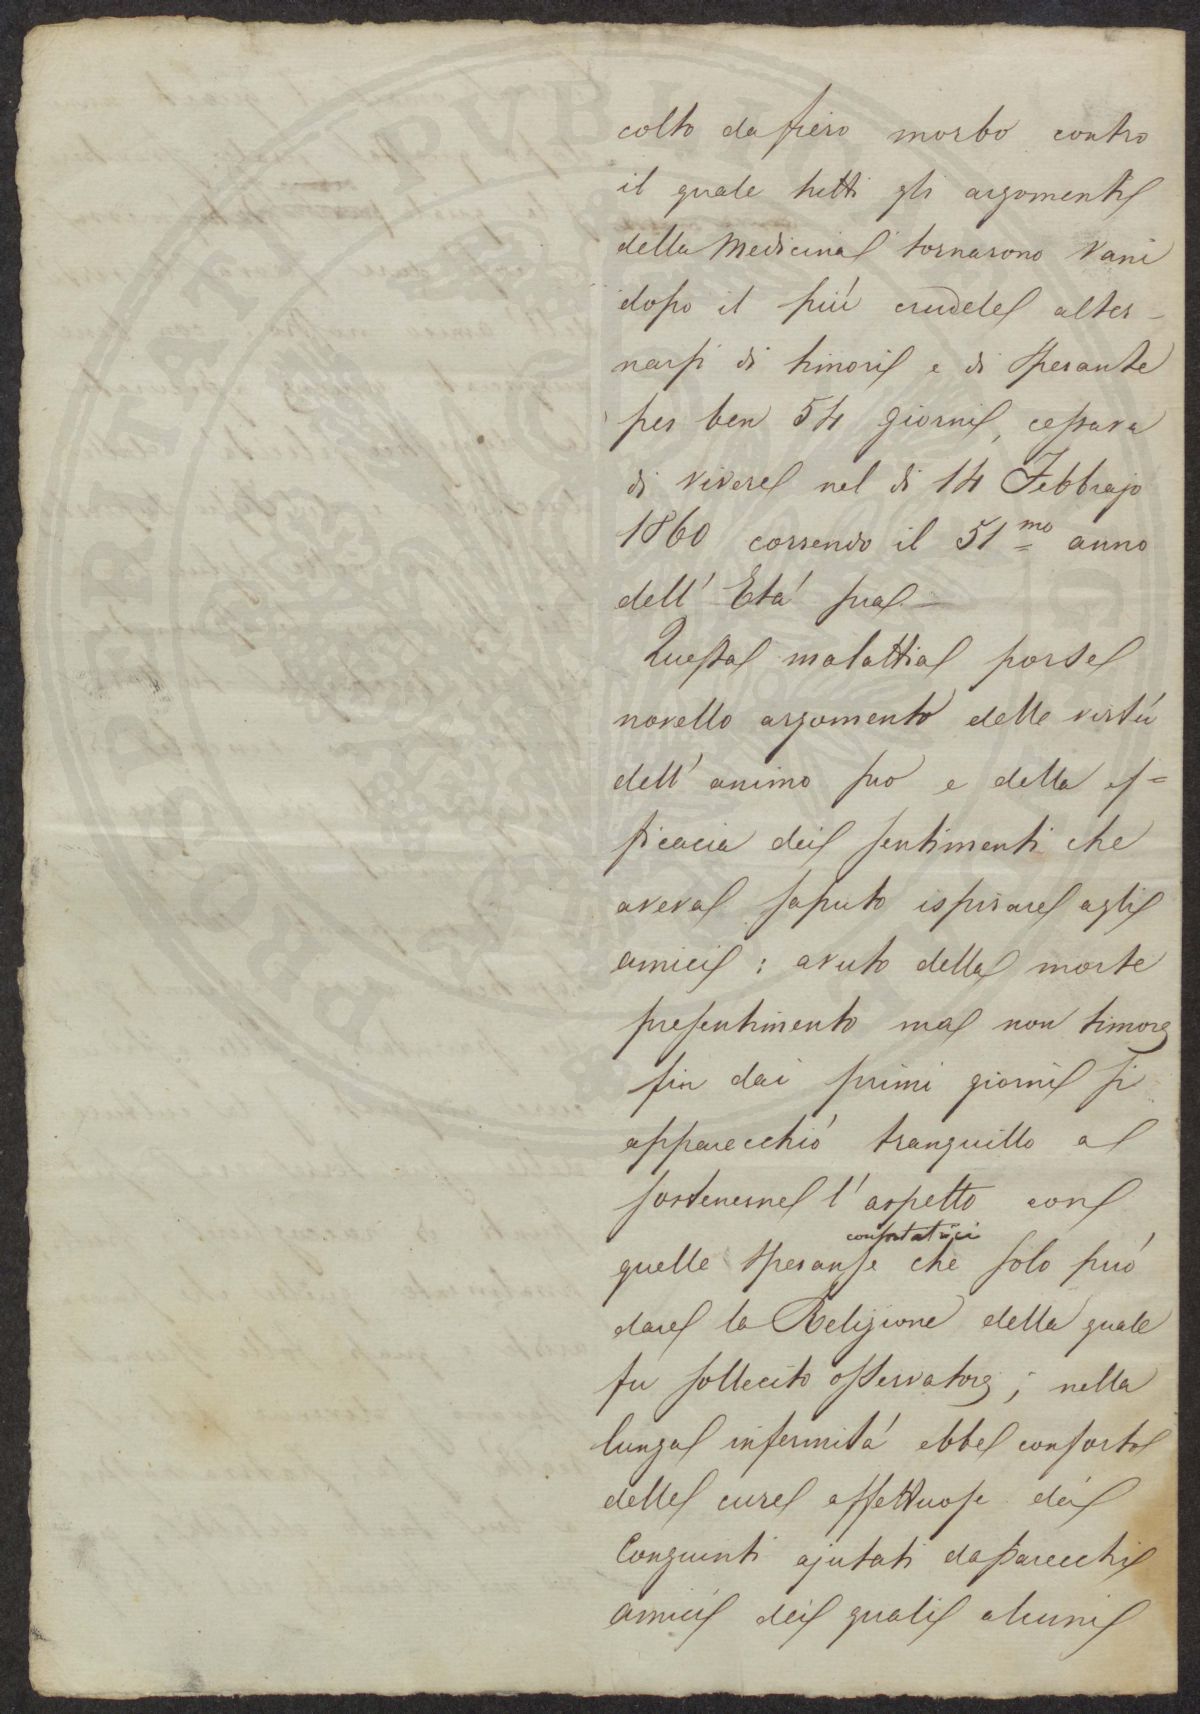 colto da fiero morbo contro
il quale tutti gli argomenti
della Medicina tornarono vani
dopo il più crudele alter-
narsi di timori e di speranze
per ben 54 giorni, cessava
di vivere nel di 14 Febbrajo
1860 correndo il 51mo anno
dell' Età sua.—
Questa malattia porse
novello argomento delle virtù
dell' animo suo e della ef=
ficacia dei sentimenti che
aveva saputo ispirare agli
amici : avuto della morte
presentimento ma non timore
fin dai primi giorni si
apparecchiò tranquillo a
sostenerne l' aspetto con
confortatrici
quelle speranze che solo può
dare la Religione della quale
fu sollecito osservatore ; nella
lunga infermità ebbe conforto
delle cure affettuose dei
Congiunti ajutati da parecchi
amici dei quali alcuni